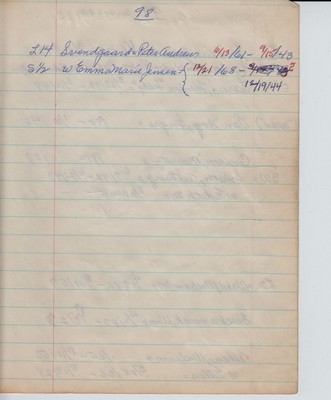 98
L14 Svendgaard, Peter Andrew 6/13/61 - 9/15/43
S½ w Emma Marie Jensen { 12/21/68 -
12/19/44